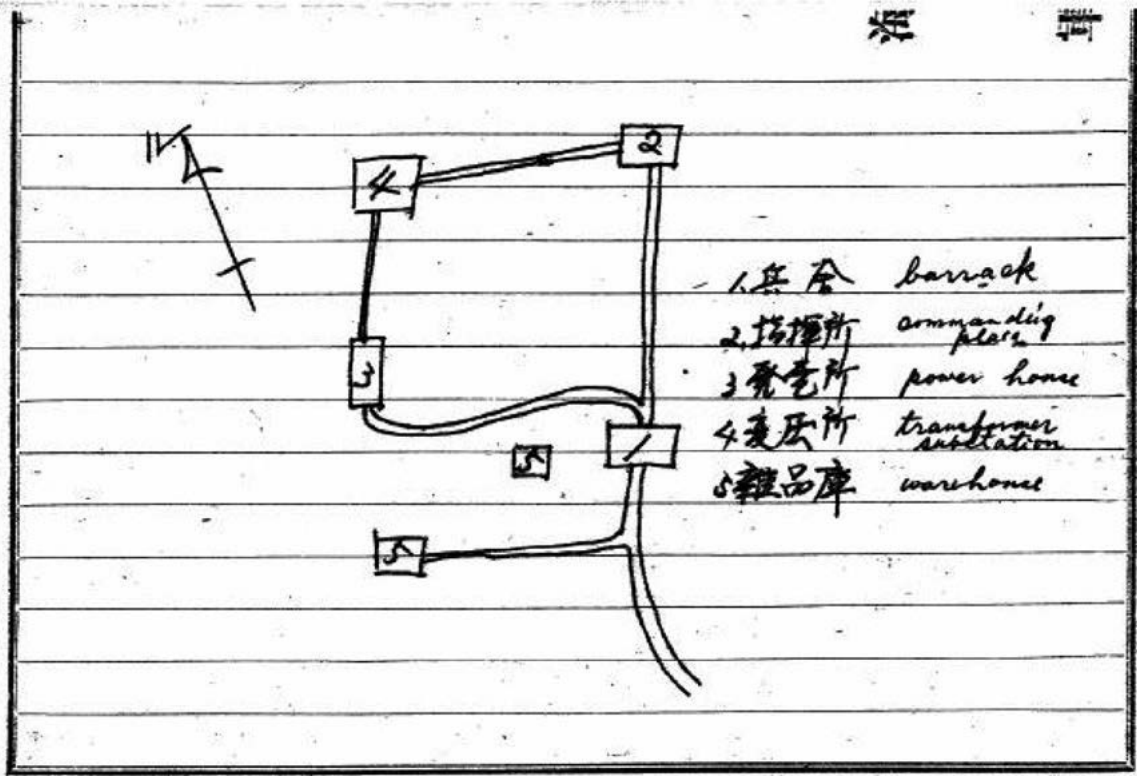 海 軍
N
4
2
3
1
5
5
1.兵舎 barrack
2.指揮所 commanding place
3 発電所 power house
4 変圧所 transformer substation
5 雜品庫 warehouse